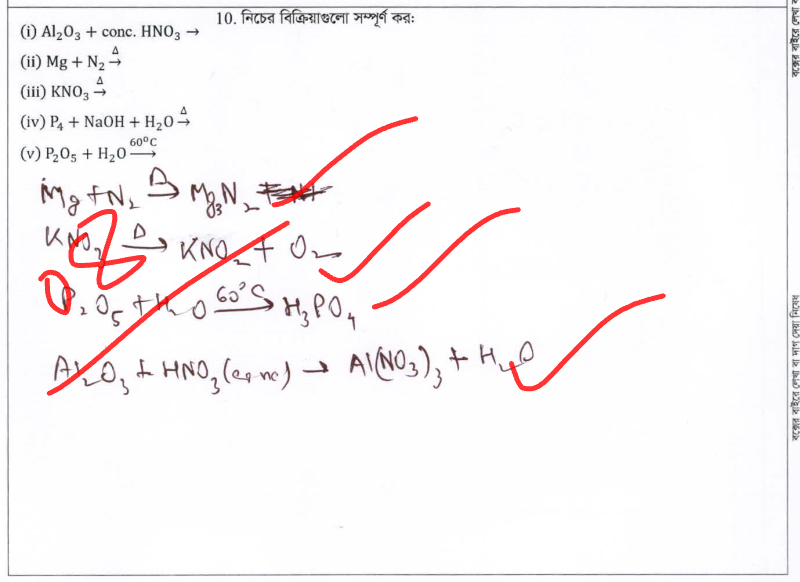 10. নিচের বিক্রিয়াগুলো সম্পূর্ণ কর:
(i) Al₂O₃ + conc. HNO₃ →
(ii) Mg + N₂ →^Δ
(iii) KNO₃ →^Δ
(iv) P₄ + NaOH + H₂O →^Δ
(v) P₂O₅ + H₂O →^60⁰C
Mg + N₂ →^Δ Mg₃N₂
KNO₃ →^Δ KNO₂ + O₂
P₂O₅ + H₂O →^60°C H₃PO₄
Al₂O₃ + HNO₃ (conc) → Al(NO₃)₃ + H₂O
08
বক্সের বাইরে লেখা বা দাগ দেয়া নিষেধ